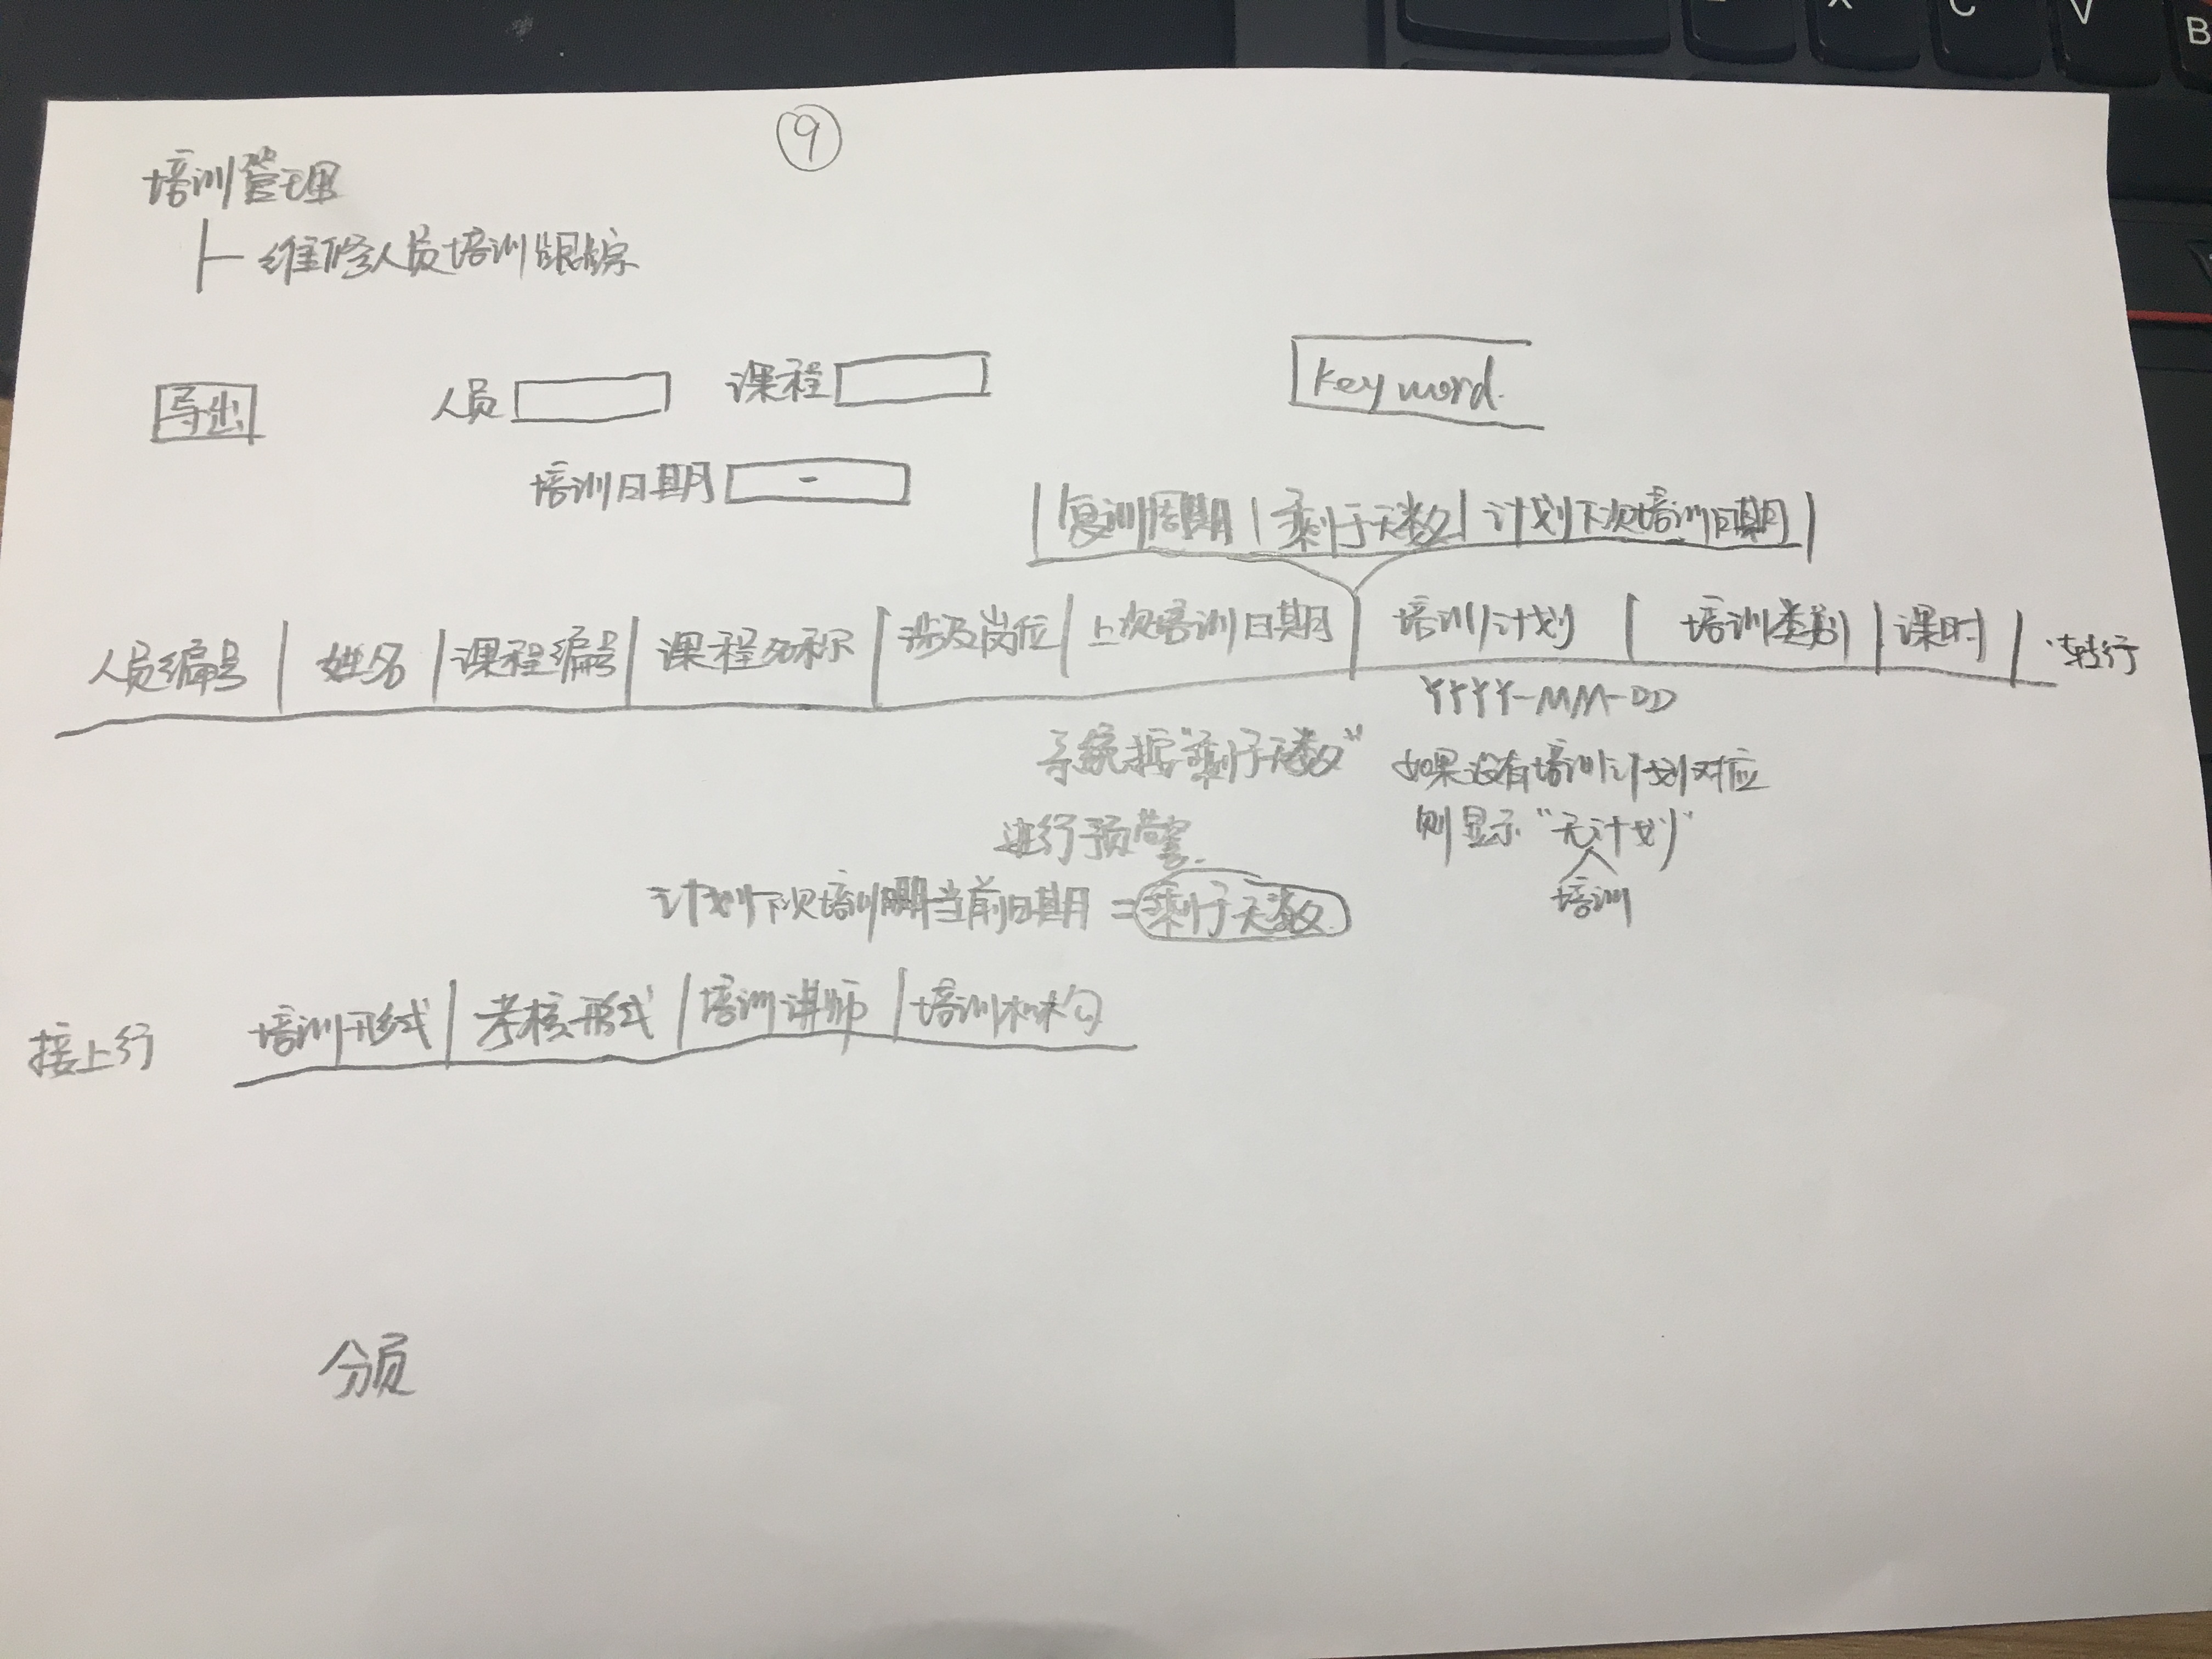 9
培训管理
├ 维修人员培训跟踪
导出 人员 课程 keyword.
培训日期 -
复训周期 | 剩于天数 | 计划下次培训日期
人员编号 | 姓名 | 课程编号 | 课程名称 | 涉及岗位 | 上次培训日期 | 培训计划 | 培训类别 | 课时 | 转行
YYYY-MM-DD
系统按"剩于天数"
进行预警.
如果没有培训计划对应
则显示"无计划"
培训
计划下次培训日期-当前日期 = 剩于天数
接上行 培训形式 | 考核形式 | 培训讲师 | 培训机构
分页
X
C
V
B